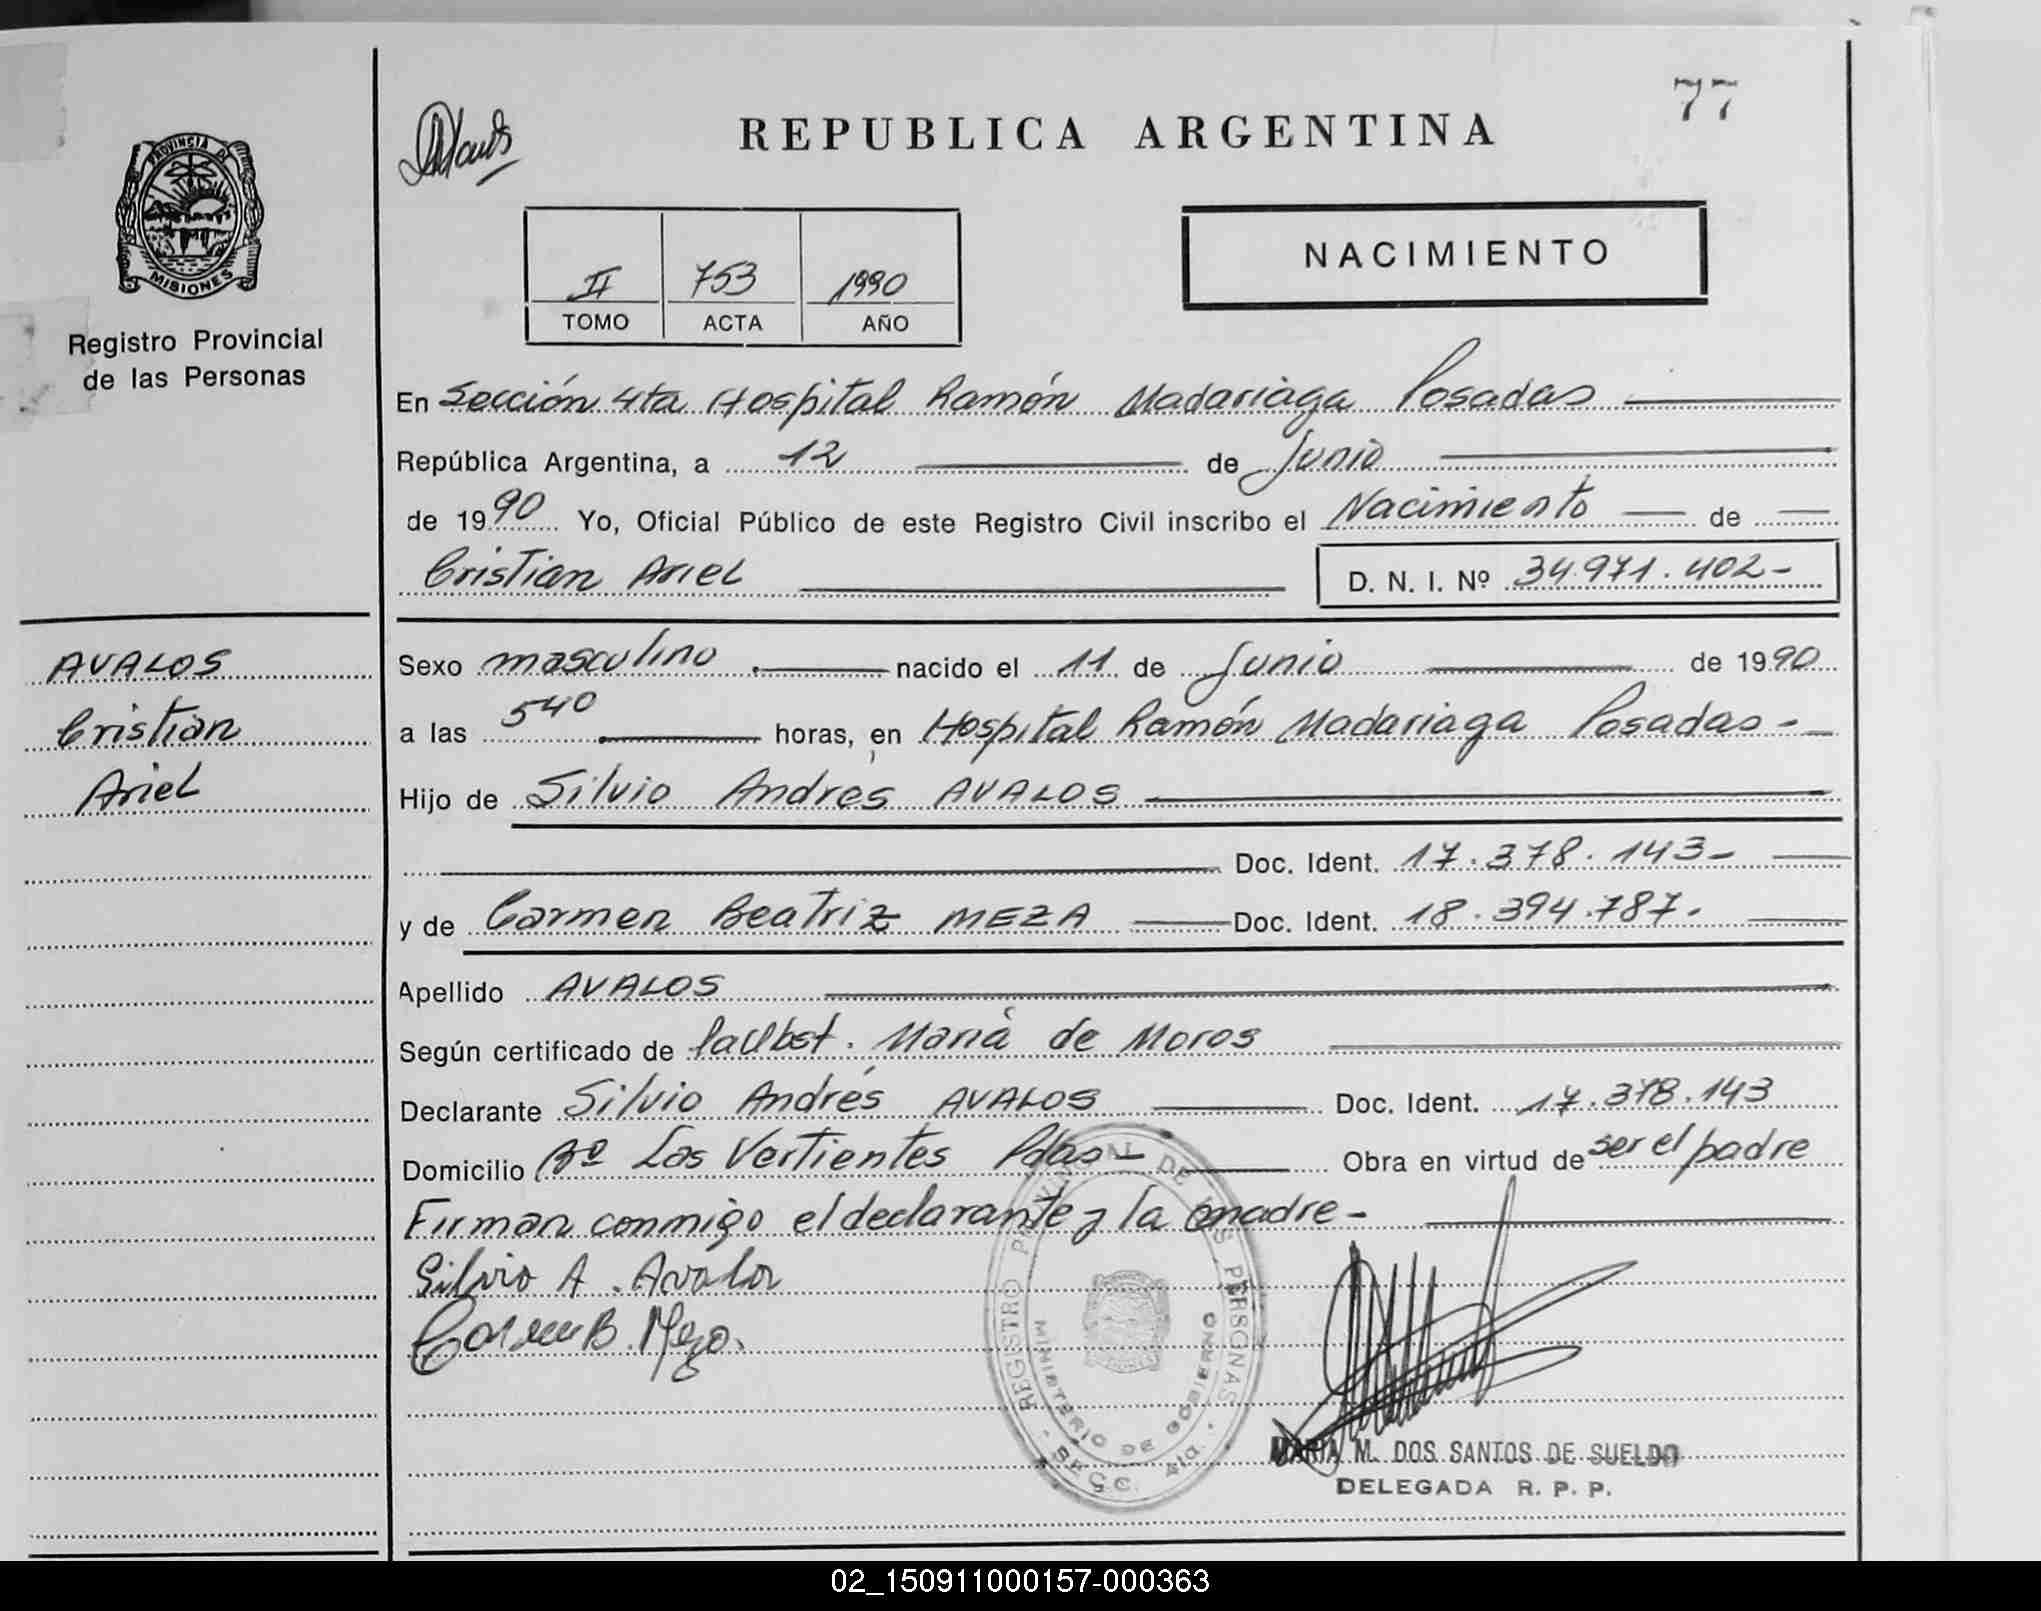 77
REPUBLICA ARGENTINA
PROVINCIA DE
MISIONES
Registro Provincial
de las Personas
NACIMIENTO
II 753 1990
TOMO ACTA AÑO
En Sección 4ta Hospital Ramón Madariaga Posadas
República Argentina, a 12 de Junio
de 1990 Yo, Oficial Público de este Registro Civil inscribo el Nacimiento de
Cristian Ariel D. N. I. Nº 34.971.402-
AVALOS
Cristian
Ariel
Sexo masculino. nacido el 11 de Junio de 1990
a las 540 horas, en Hospital Ramón Madariaga Posadas-
Hijo de Silvio Andrés AVALOS
Doc. Ident. 17.378.143-
y de Carmen Beatriz MEZA Doc. Ident. 18.394.787.
Apellido AVALOS
Según certificado de María de Moros
Declarante Silvio Andrés AVALOS Doc. Ident. 17.378.143
Domicilio Bº Las Vertientes Pdas- Obra en virtud de ser el padre
Firman conmigo el declarante y la madre-
Silvio A. Avalos
Carmen B. Meza.
REGISTRO PROVINCIAL DE LAS PERSONAS
MINISTERIO DE GOBIERNO
- SECC. 4ta. -
MARIA M. DOS SANTOS DE SUELDO
DELEGADA R. P. P.
02_150911000157-000363